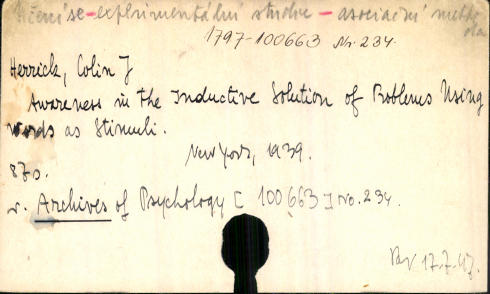 učení se - experimentální studie - asociační metoda
1797-100663 Nr. 234.
Herrick, Colin J
Awareness in the Inductive Solution of Problems Using
words as Stimuli.
New York, 1939.
87 s.
v. Archives of Psychology [100663] No. 234.
17.7.47.